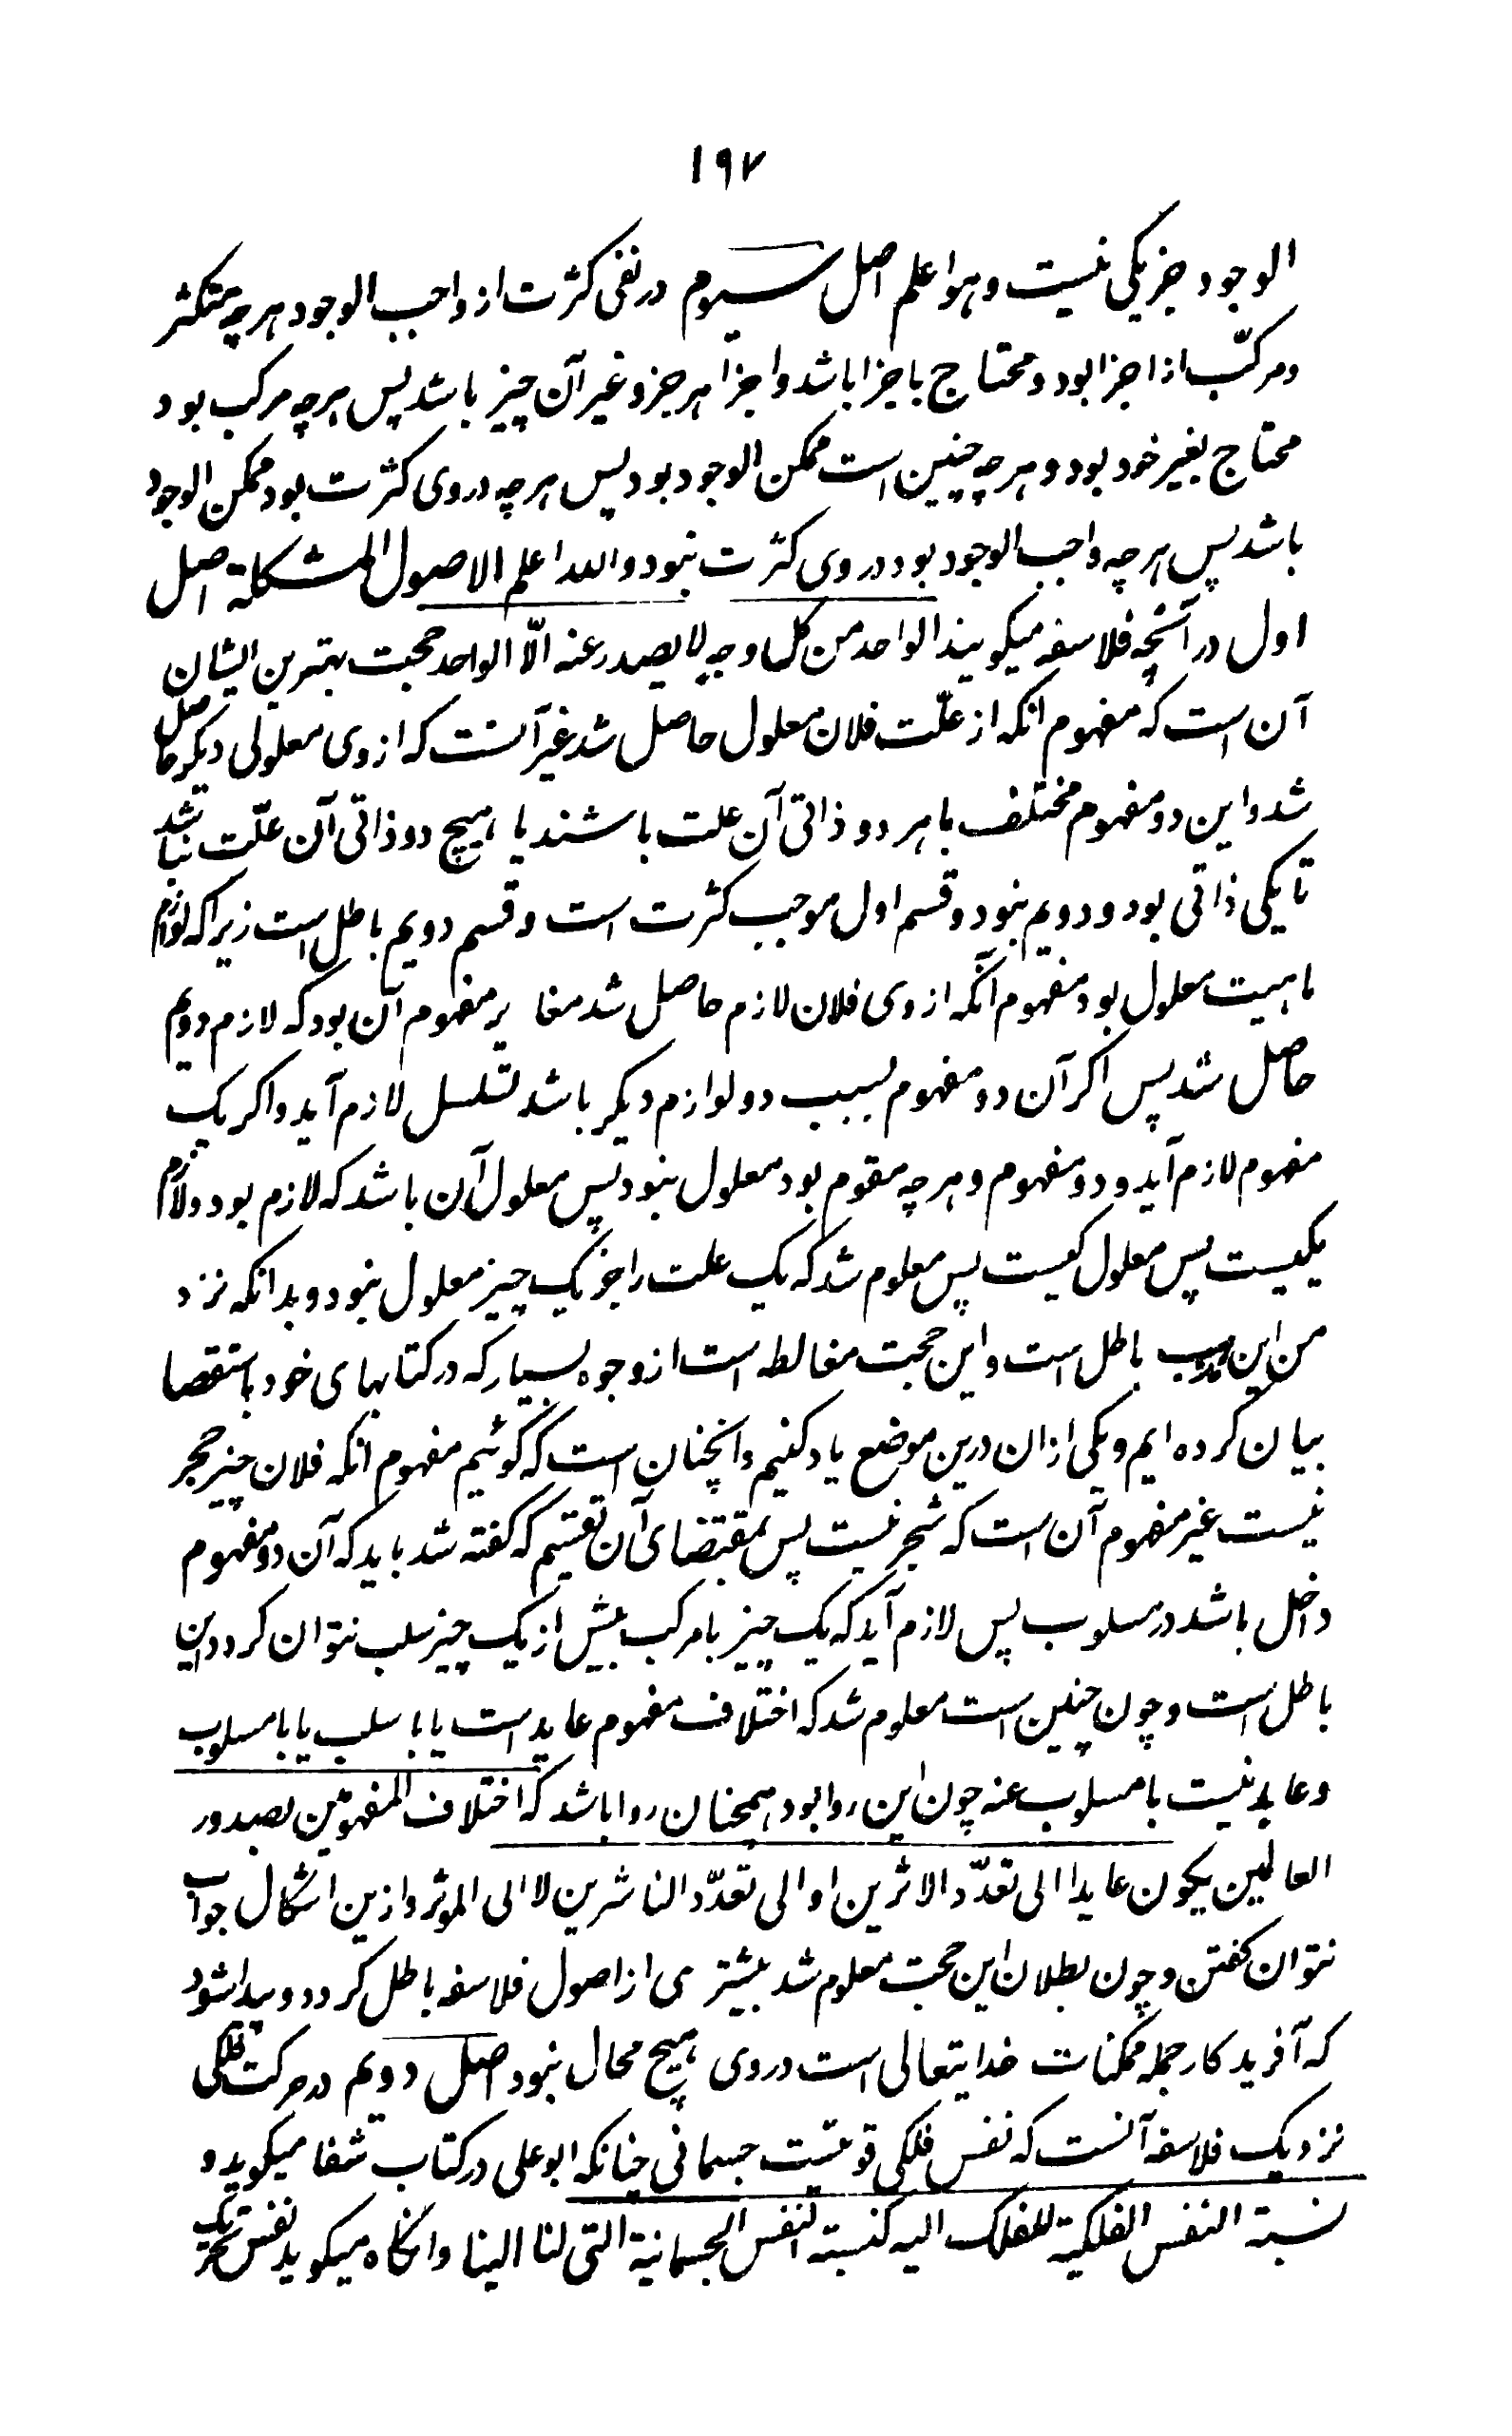 ۱۹۷
الوجود جز یکی نیست و هو اعلم اصل سیوم در نفی کثرت از واجب الوجود هر چه متکثر
و مرکّب از اجزا بود و محتاج باجزا باشد و اجزا هر جزو غیر آن چیز باشد پس هر چه مرکب بود
محتاج بغیر خود بود و هر چه چنین است ممکن الوجود بود پس هر چه در وی کثرت بود ممکن الوجود
باشد پس هر چه واجب الوجود بود در وی کثرت نبود والله اعلم الاصول المشکلة اصل
اول در آنچه فلاسفه میکویند الواحد من کل وجه لا یصدر عنه الّا الواحد حجت بهترین ایشان
آن است که مفهوم انکه از علّت فلان معلول حاصل شد غیر آنست که از وی معلولی دیکر حاصل
شد و این دو مفهوم مختلف یا هر دو ذاتی آن علت باشند یا هیچ دو ذاتی آن علّت نباشد
تا یکی ذاتی بود و دویم نبود و قسم اول موجب کثرت است و قسم دویم باطل است زیرا که لوازم
ماهیت معلول بود مفهوم آنکه از وی فلان لازم حاصل شد مغایر مفهوم آن بود که لازم دویم
حاصل شد پس اکر آن دو مفهوم بسبب دو لوازم دیکر باشد تسلسل لازم آید و اکر یک
مفهوم لازم آید و دو مفهوم و هر چه مقوم بود معلول نبود پس معلول آن باشد که لازم بود و لازم
یکیست پس معلول یکیست پس معلوم شد که یک علت را جز یک چیز معلول نبود و بدانکه نزد
من این مذهب باطل است و این حجت مغالطه است از وجوه بسیار که در کتابهای خود باستقصا
بیان کرده ایم و یکی از ان درین موضع یاد کنیم و انچنان است که کوئیم مفهوم انکه فلان چیز حجر
نیست غیر مفهوم آن است که شجر نیست پس بمقتضای آن تقسیم که کفته شد باید که آن دو مفهوم
داخل باشد در مسلوب پس لازم آید که یک چیز یا مرکب بیش از یک چیز سلب نتوان کرد و این
باطل است و چون چنین است معلوم شد که اختلاف مفهوم عاید است یا با سلب یا با مسلوب
و عاید نیست با مسلوب عنه چون این روا بود همچنان روا باشد که اختلاف المفهومین بصدور
العالمین یکون عایدا الی تعدّد الاثرین او الی تعدّد الناشرین لا الی الموثر و ازین اشکال جواب
نتوان کفتن و چون بطلان این حجت معلوم شد بیشتر می از اصول فلاسفه باطل کردد و پیدا شود
که آفریدکار جمله ممکنات خدایتعالی است و در وی هیچ محال نبود اصل دویم در حرکت فلکی
نزدیک فلاسفه آنست که نفس فلکی قوتیست جسمانی چنانکه ابو علی در کتاب شفا میکوید و
نسبة النفس الفلکیة للفلک الیه کنسبة النفس الجسمانیة التی لنا الینا و انکاه میکوید نفس تحریک